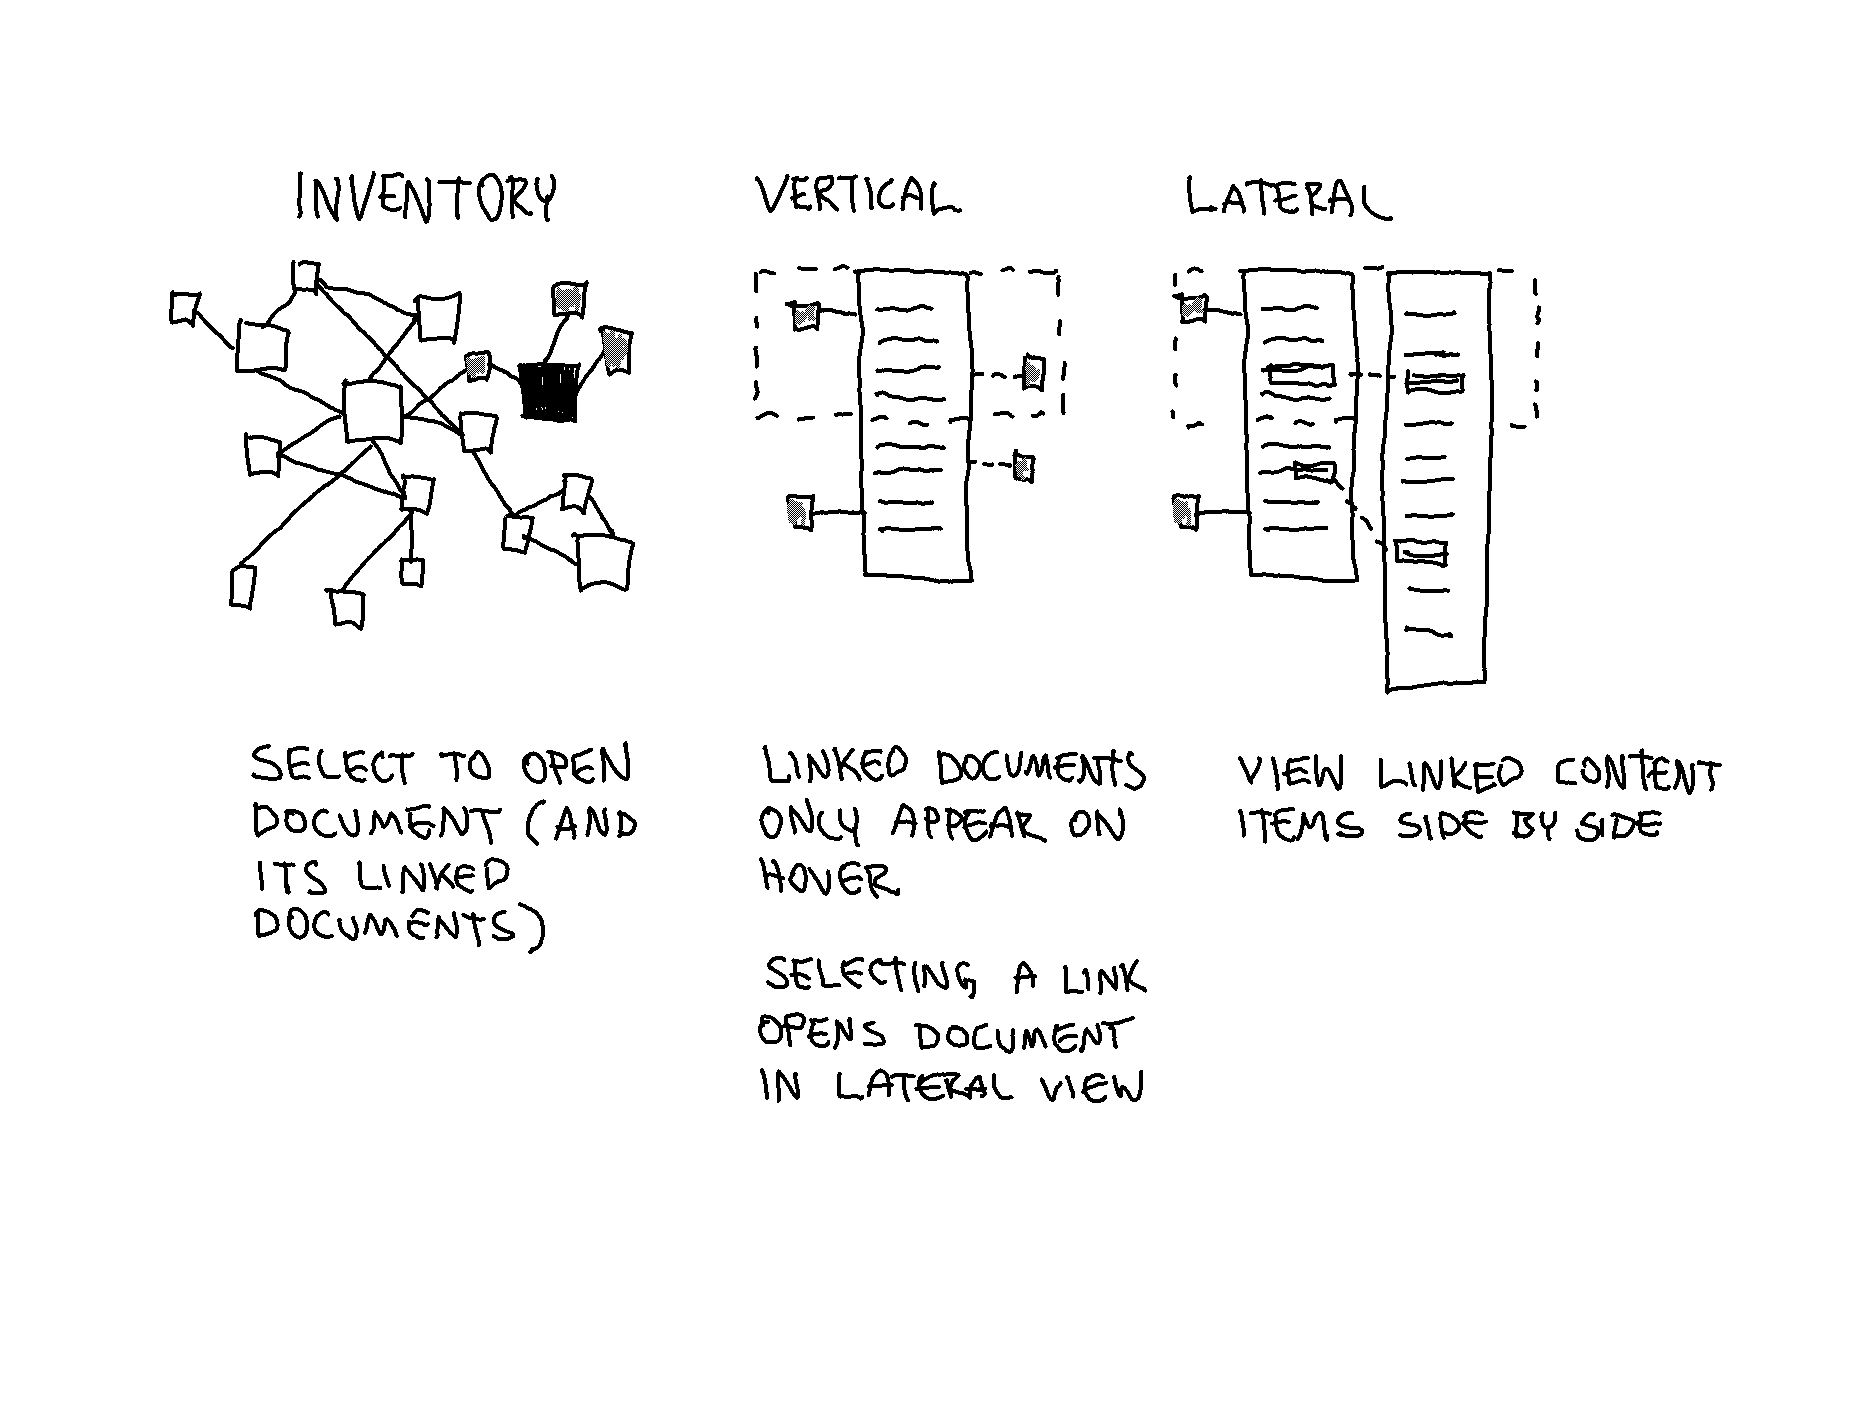 INVENTORY
SELECT TO OPEN
DOCUMENT (AND
ITS LINKED
DOCUMENTS)
VERTICAL
LINKED DOCUMENTS
ONLY APPEAR ON
HOVER
SELECTING A LINK
OPENS DOCUMENT
IN LATERAL VIEW
LATERAL
VIEW LINKED CONTENT
ITEMS SIDE BY SIDE